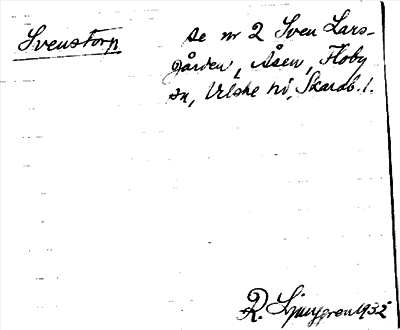 Svenstorp
se nr 2 Sven Lars-
gården, Åsen, Floby
sn, Vilske hd, Skarab. l.
R. Ljunggren 1932